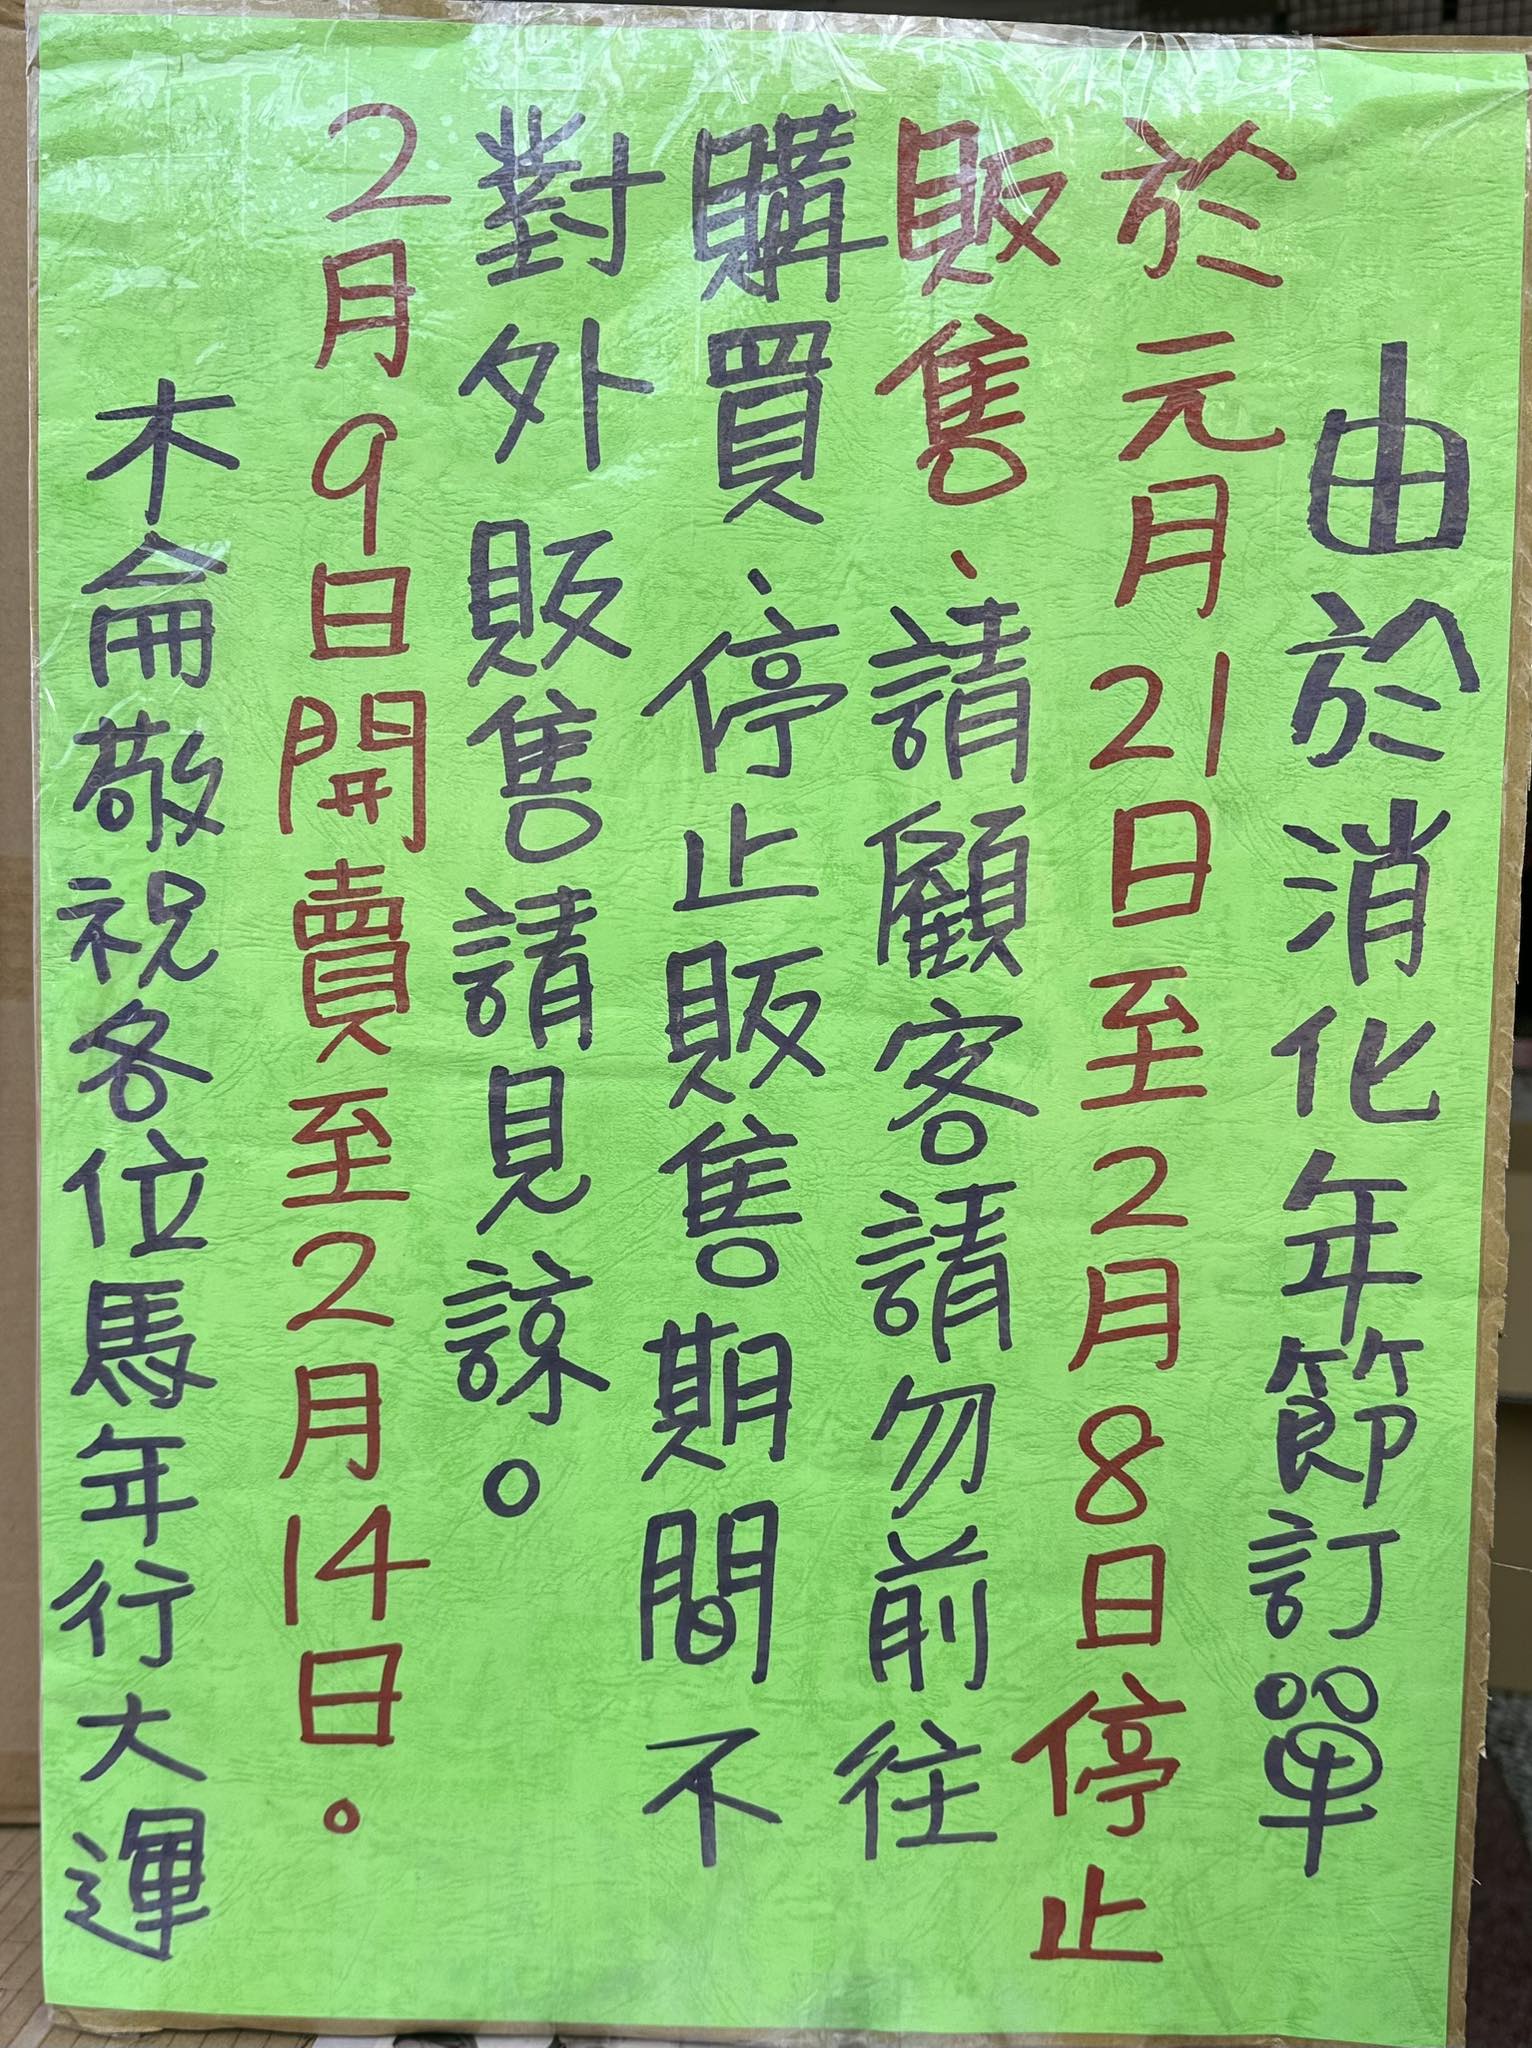 由於消化年節訂單
於元月21日至2月8日停止
販售、請顧客請勿前往
購買、停止販售期間不
對外販售請見諒。
2月9日開賣至2月14日。
木侖敬祝各位馬年行大運